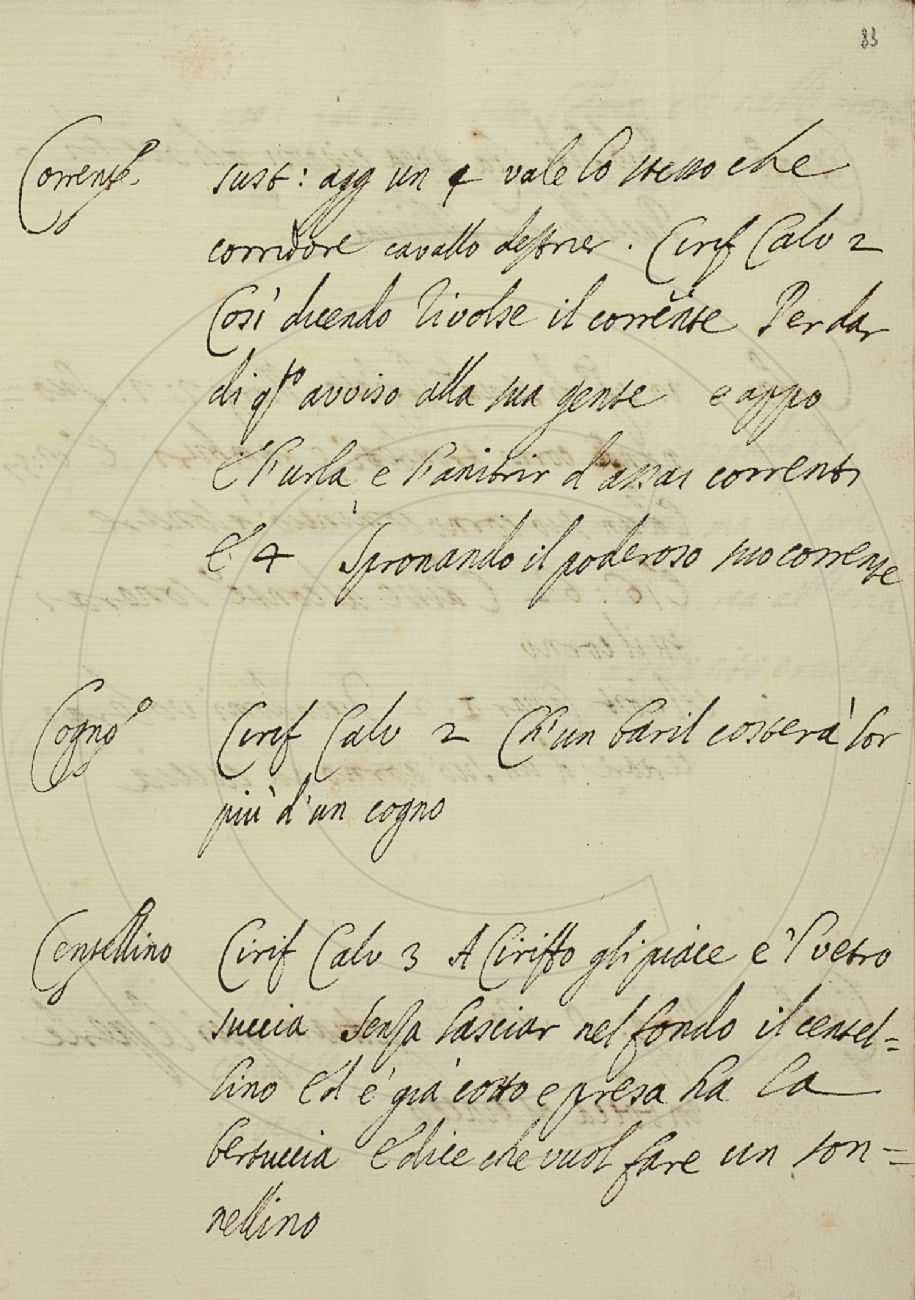 83
Corrente. sust: agg un 4 vale lo stesso che
corridore cavallo destrier . Cirif Calv 2
Così dicendo rivolse il corrente Per dar
di qsto avviso alla sua gente e appo
E furla e fanitrir d'assai correnti
E 4 Spronando il poderoso suo corrente
Cogno Ciref Calv 2 Ch'un baril costerà lor
più d'un cogno
Centellino Cirif Calv 3 A Ciriffo gli piace e'l vetro
succia Senza lasciar nel fondo il centel=
lino Ed è già cotto e presa ha la
bertuccia E dice che vuol fare un son=
nellino